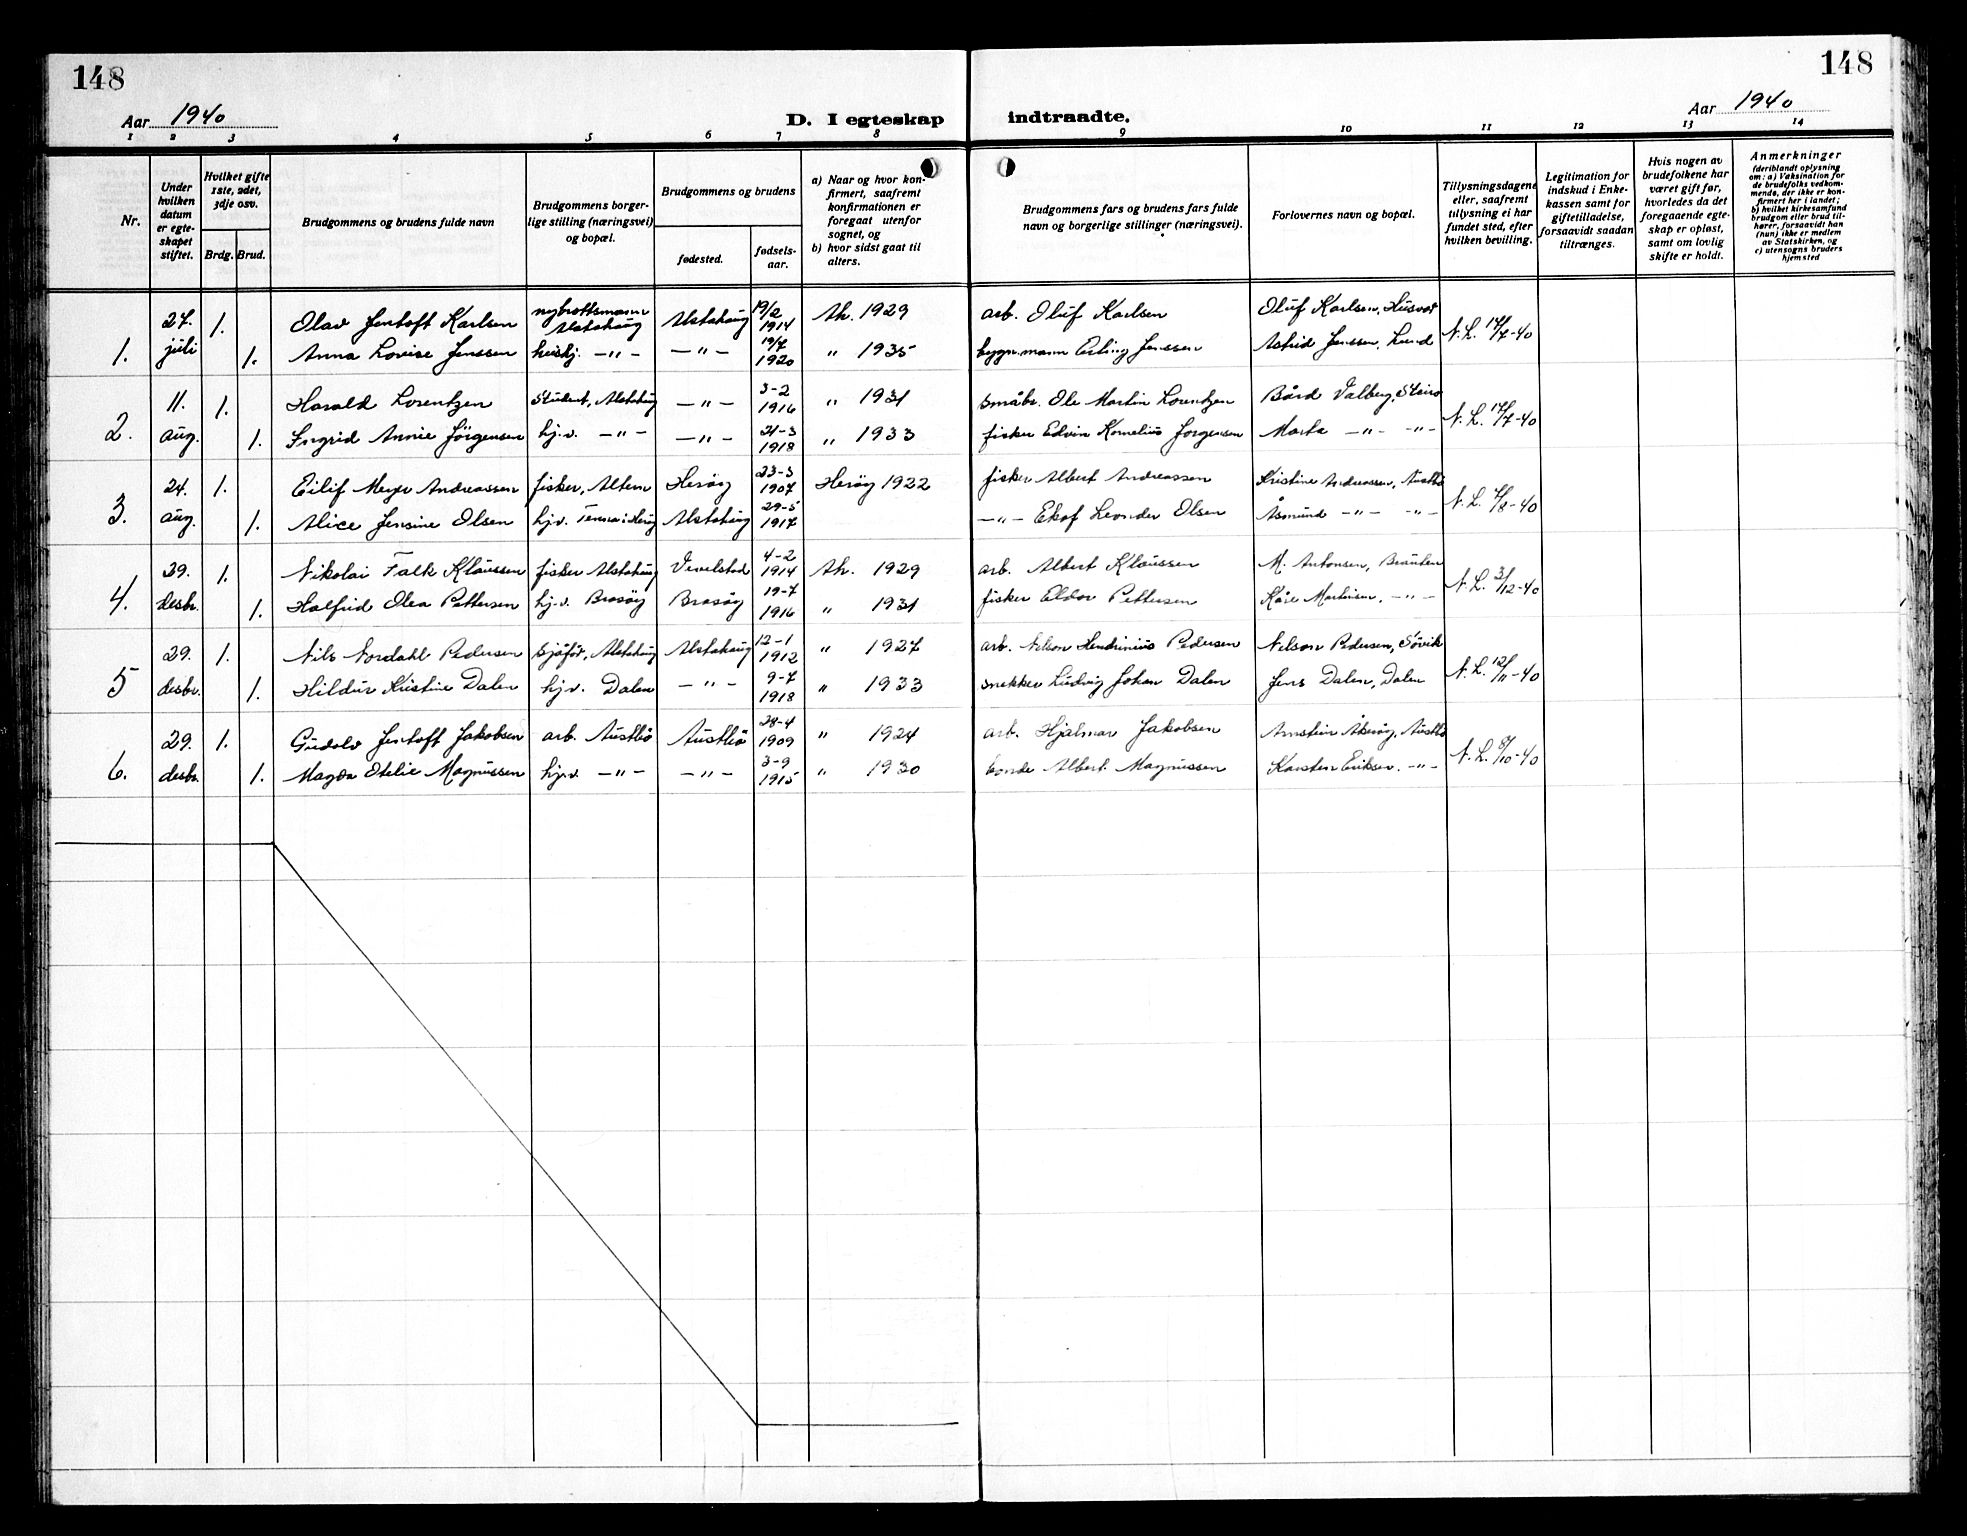 148
148
Aar 1940
D. I egteskap indtraadte.
Aar 1940
1 2 3 4 5 6 7 8 9 10 11 12 13 14
Nr.
Under hvilken datum er egteskapet stiftet.
Hvilket gifte 1ste, 2det, 3dje osv.
Brdg. Brud.
Brudgommens og brudens fulde navn
Brudgommens borgerlige stilling (næringsvei) og bopæl.
Brudgommens og brudens
fødested.
fødselsaar.
a) Naar og hvor konfirmert, saafremt konfirmationen er foregaat utenfor sognet, og
b) hvor sidst gaat til alters.
Brudgommens fars og brudens fars fulde navn og borgerlige stillinger (næringsvei).
Forlovernes navn og bopæl.
Tillysningsdagene eller, saafremt tillysning ei har fundet sted, efter hvilken bevilling.
Legitimation for indskud i Enkekassen samt for giftetilladelse, forsaavidt saadan tiltrænges.
Hvis nogen av brudefolkene har været gift før, hvorledes da det foregaaende egteskap er opløst, samt om lovlig skifte er holdt.
Anmerkninger (deriblandt oplysning om: a) Vaksination for de brudefolks vedkommende, der ikke er konfirmert her i landet; b) hvilket kirkesamfund brudgom eller brud tilhører, forsaavidt han (hun) ikke er medlem av Statskirken, og c) utensogns bruders hjemsted
1. 27. juli 1. Olav Jentoft Karlsen nybrottsmann Alstahaug Alstahaug 19/2 1914 Ah. 1929 arb. Oluf Karlsen Oluf Karlsen, Husvær N.L. 14/7-40
1. Anna Lovise Jenssen hushj. -"- -"- 19/7 1920 " 1935 bygn.mann Erling Jenssen Astrid Jenssen, Lund
2. 11. aug. 1. Harald Lorentzen Student, Alstahaug -"- 3-2 1916 " 1931 småbr. Ole Martin Lorentzen Bård Valberg, N.L. 17/7-40
1. Ingrid Annie Jörgensen hj.v. -"- -"- 21-3 1918 " 1933 fisker Edvin Kornelius Jorgensen Marta -"- -"-
3. 24. aug. 1. Eilif Meyer Andreassen fisker, Altern Heröy 23-3 1907 Heröy 1922 fisker Albert Andreassen Kristine Andreassen, Austbö N.L. 4/8-40
1. Alice Jensine Olsen hj.v. Tenna i Heröy Alstahaug 29-5 1917 -"- Leonder Olsen Åsmund -"- -"-
4. 29. desbr. 1. Nikolai Falk Klaussen fisker Alstahaug Vevelstad 4-2 1914 Ah. 1929 arb. Albert Klaussen M. Antonsen, N.L. 3/12-40
1. Halfrid Olea Pettersen hj.v. Brasöy Brasöy 19-7 1916 " 1931 fisker Eldor Pettersen Kåre Martinsen, -"-
5 29. desbr. 1. Nils Nordahl Pedersen sjåför, Alstahaug Alstahaug 12-1 1912 " 1927 arb. Nelson Hendrinius Pedersen Nelson Pedersen, Sövik N.L. 12/11-40
1. Hildur Kristine Dalen hj.v. Dalen -"- 9-7 1918 " 1933 snekker Ludvig Johan Dalen Jens Dalen, Dalen
6. 29. desbr. 1. Gudolv Jentoft Jakobsen arb. Austbö Austbö 28-4 1909 " 1924 arb. Hjalmar Jakobsen Arnstein Åkeröy, Austbö N.L. 8/10-40
1. Magda Otelie Magnussen hj.v. -"- -"- 3-9 1915 " 1930 bonde Albert Magnussen Karsten Eriksen. -"-